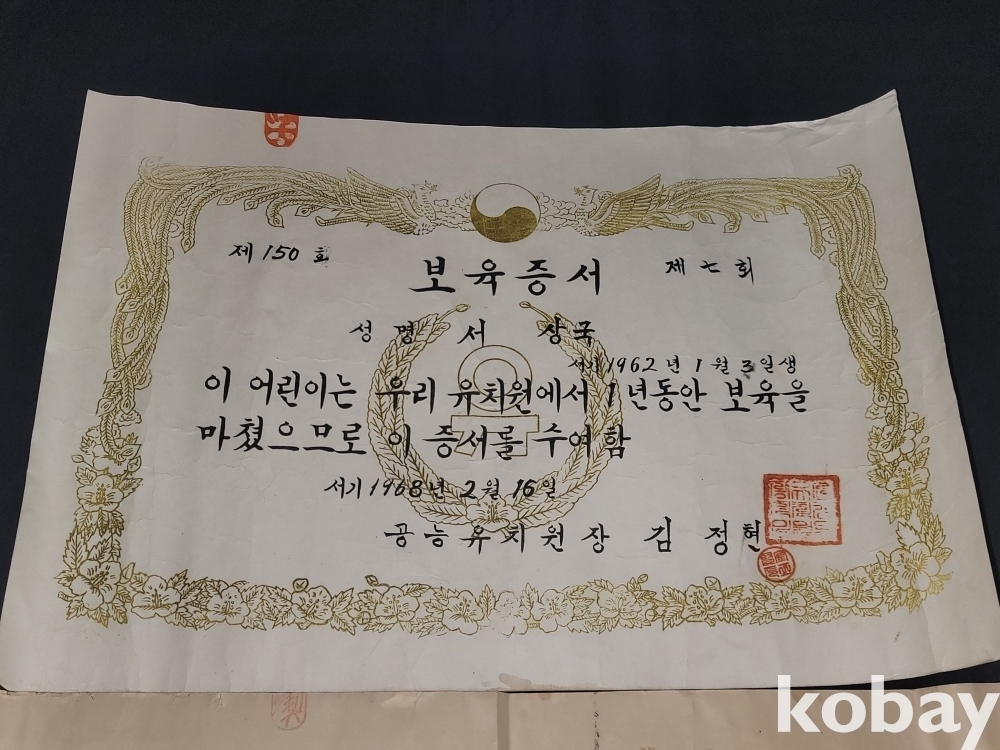 제 150 호
보육증서
제 七 회
성명 서 상국
서기 1962년 1월 3일생
이 어린이는 우리 유치원에서 1년동안 보육을
마쳤으므로 이 증서를 수여함
서기 1968년 2월 16일
공능유치원장 김 정현
kobay